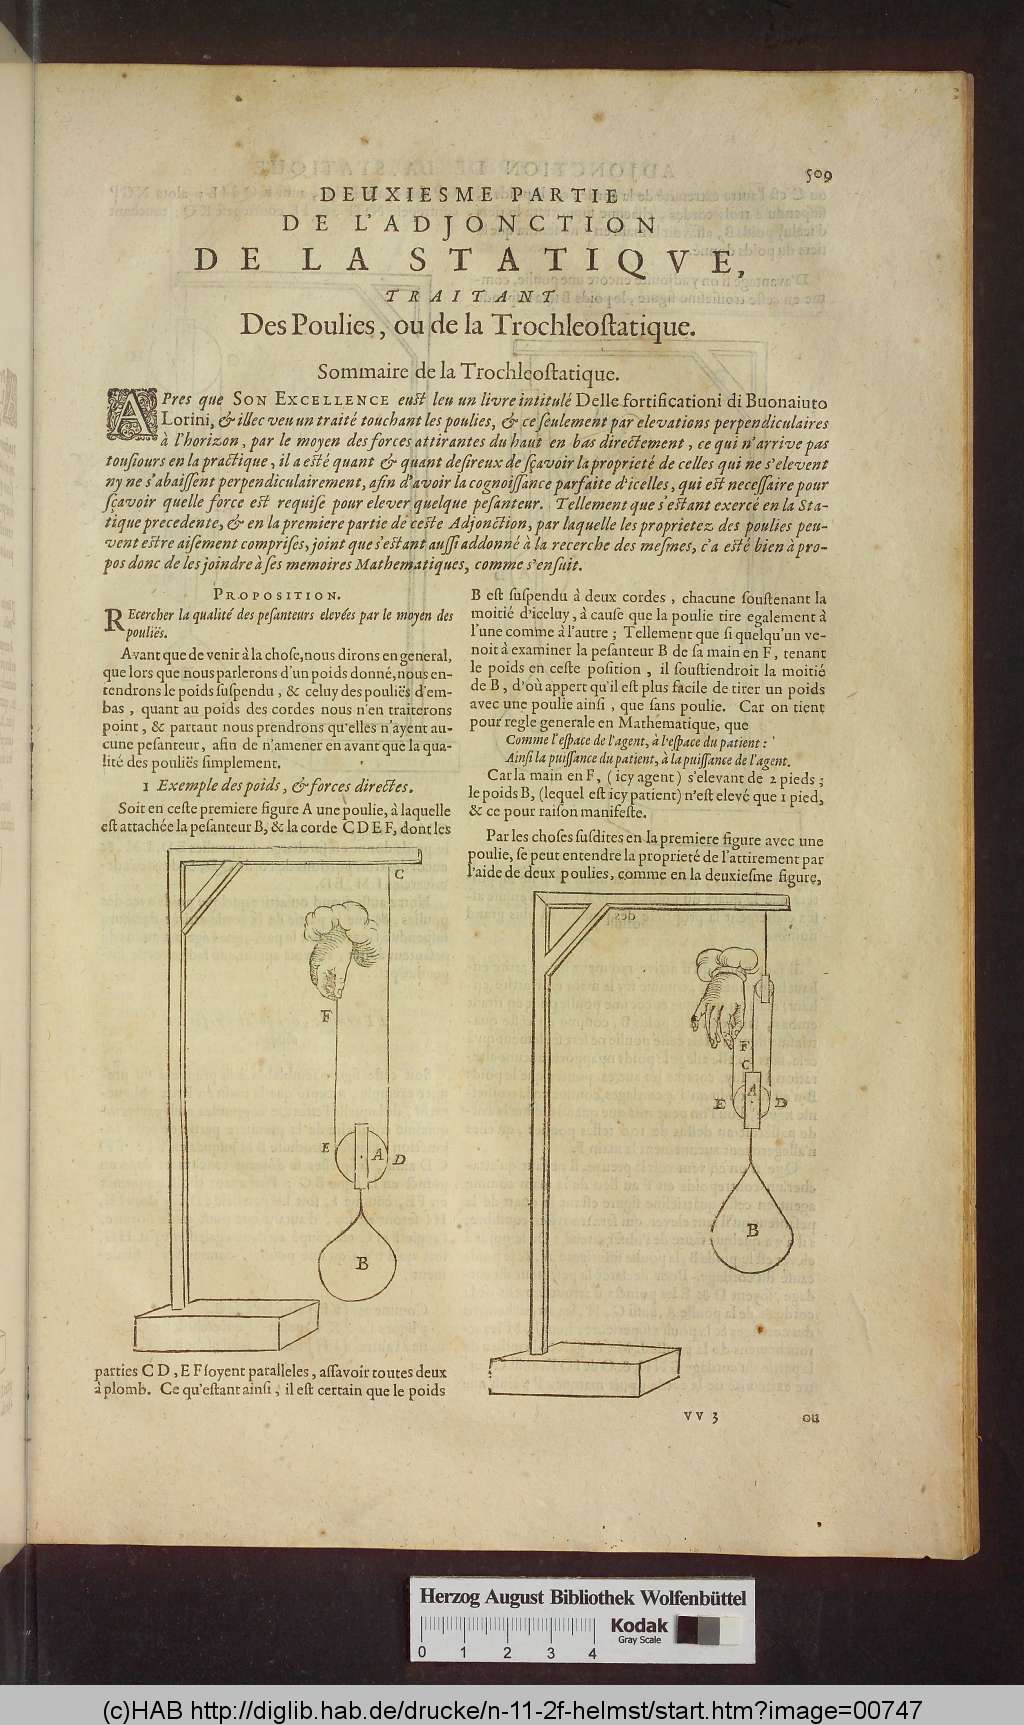 509
DEUXIESME PARTIE
DE L'ADJONCTION
DE LA STATIQVE,
TRAITANT
Des Poulies, ou de la Trochleoſtatique.
Sommaire de la Trochleoſtatique.
APres que SON EXCELLENCE euſt leu un livre intitulé Delle fortificationi di Buonaiuto
Lorini, & illec veu un traité touchant les poulies, & ce ſeulement par elevations perpendiculaires
à l'horizon, par le moyen des forces attirantes du haut en bas directement, ce qui n'arrive pas
touſiours en la practique, il a eſté quant & quant deſireux de ſçavoir la proprieté de celles qui ne s'elevent
ny ne s'abaiſſent perpendiculairement, afin d'avoir la cognoiſſance parfaite d'icelles, qui eſt neceſſaire pour
ſçavoir quelle force eſt requiſe pour elever quelque peſanteur. Tellement que s'eſtant exercé en la Sta-
tique precedente, & en la premiere partie de ceſte Adjonction, par laquelle les proprietez des poulies peu-
vent eſtre aiſement compriſes, joint que s'eſtant auſſi addonné à la recerche des meſmes, ç'a eſté bien à pro-
pos donc de les joindre à ſes memoires Mathematiques, comme s'enſuit.
PROPOSITION.
REcercher la qualité des peſanteurs elevées par le moyen des
pouliës.
Avant que de venir à la choſe, nous dirons en general,
que lors que nous parlerons d'un poids donné, nous en-
tendrons le poids ſuſpendu, & celuy des pouliës d'em-
bas, quant au poids des cordes nous n'en traiterons
point, & partant nous prendrons qu'elles n'ayent au-
cune peſanteur, afin de n'amener en avant que la qua-
lité des pouliës ſimplement.
1 Exemple des poids, & forces directes.
Soit en ceſte premiere figure A une poulie, à laquelle
eſt attachée la peſanteur B, & la corde C D E F, dont les
C
F
E
A
D
B
parties C D, E F ſoyent paralleles, aſſavoir toutes deux
à plomb. Ce qu'eſtant ainſi, il eſt certain que le poids
B eſt ſuſpendu à deux cordes, chacune ſouſtenant la
moitié d'iceluy, à cauſe que la poulie tire egalement à
l'une comme à l'autre; Tellement que ſi quelqu'un ve-
noit à examiner la peſanteur B de ſa main en F, tenant
le poids en ceſte poſition, il ſouſtiendroit la moitié
de B, d'où appert qu'il eſt plus facile de tirer un poids
avec une poulie ainſi, que ſans poulie. Car on tient
pour regle generale en Mathématique, que
Comme l'eſpace de l'agent, à l'eſpace du patient:
Ainſi la puiſſance du patient, à la puiſſance de l'agent.
Car la main en F, (icy agent) s'elevant de 2 pieds;
le poids B, (lequel eſt icy patient) n'eſt elevé que 1 pied,
& ce pour raiſon manifeſte.
Par les choſes ſuſdites en la premiere figure avec une
poulie, ſe peut entendre la proprieté de l'attirement par
l'aide de deux poulies, comme en la deuxieſme figure,
F
C
A
E
D
B
VV 3
ou
Herzog August Bibliothek Wolfenbüttel
0 1 2 3 4
Kodak
Gray Scale
(c)HAB http://diglib.hab.de/drucke/n-11-2f-helmst/start.htm?image=00747